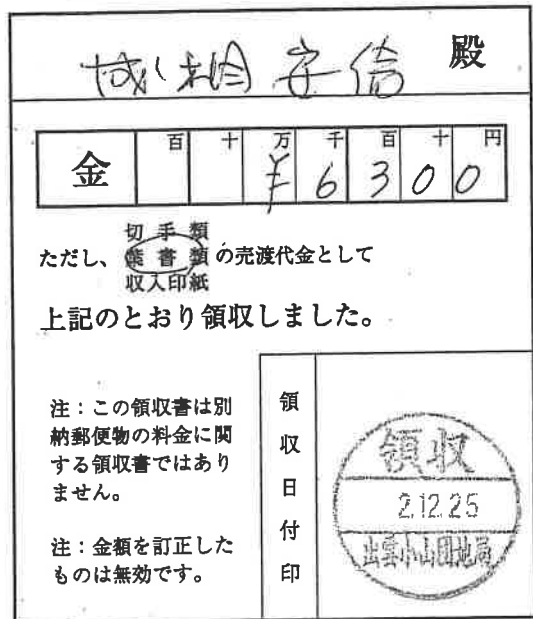 成相安信 殿
金 百 十 万 千 百 十 円
¥ 6 3 0 0
切手類
ただし、葉書類の売渡代金として
収入印紙
上記のとおり領収しました。
注：この領収書は別
納郵便物の料金に関
する領収書ではあり
ません。
注：金額を訂正した
ものは無効です。
領収日付印
領収
2.12.25
出雲小山団地局